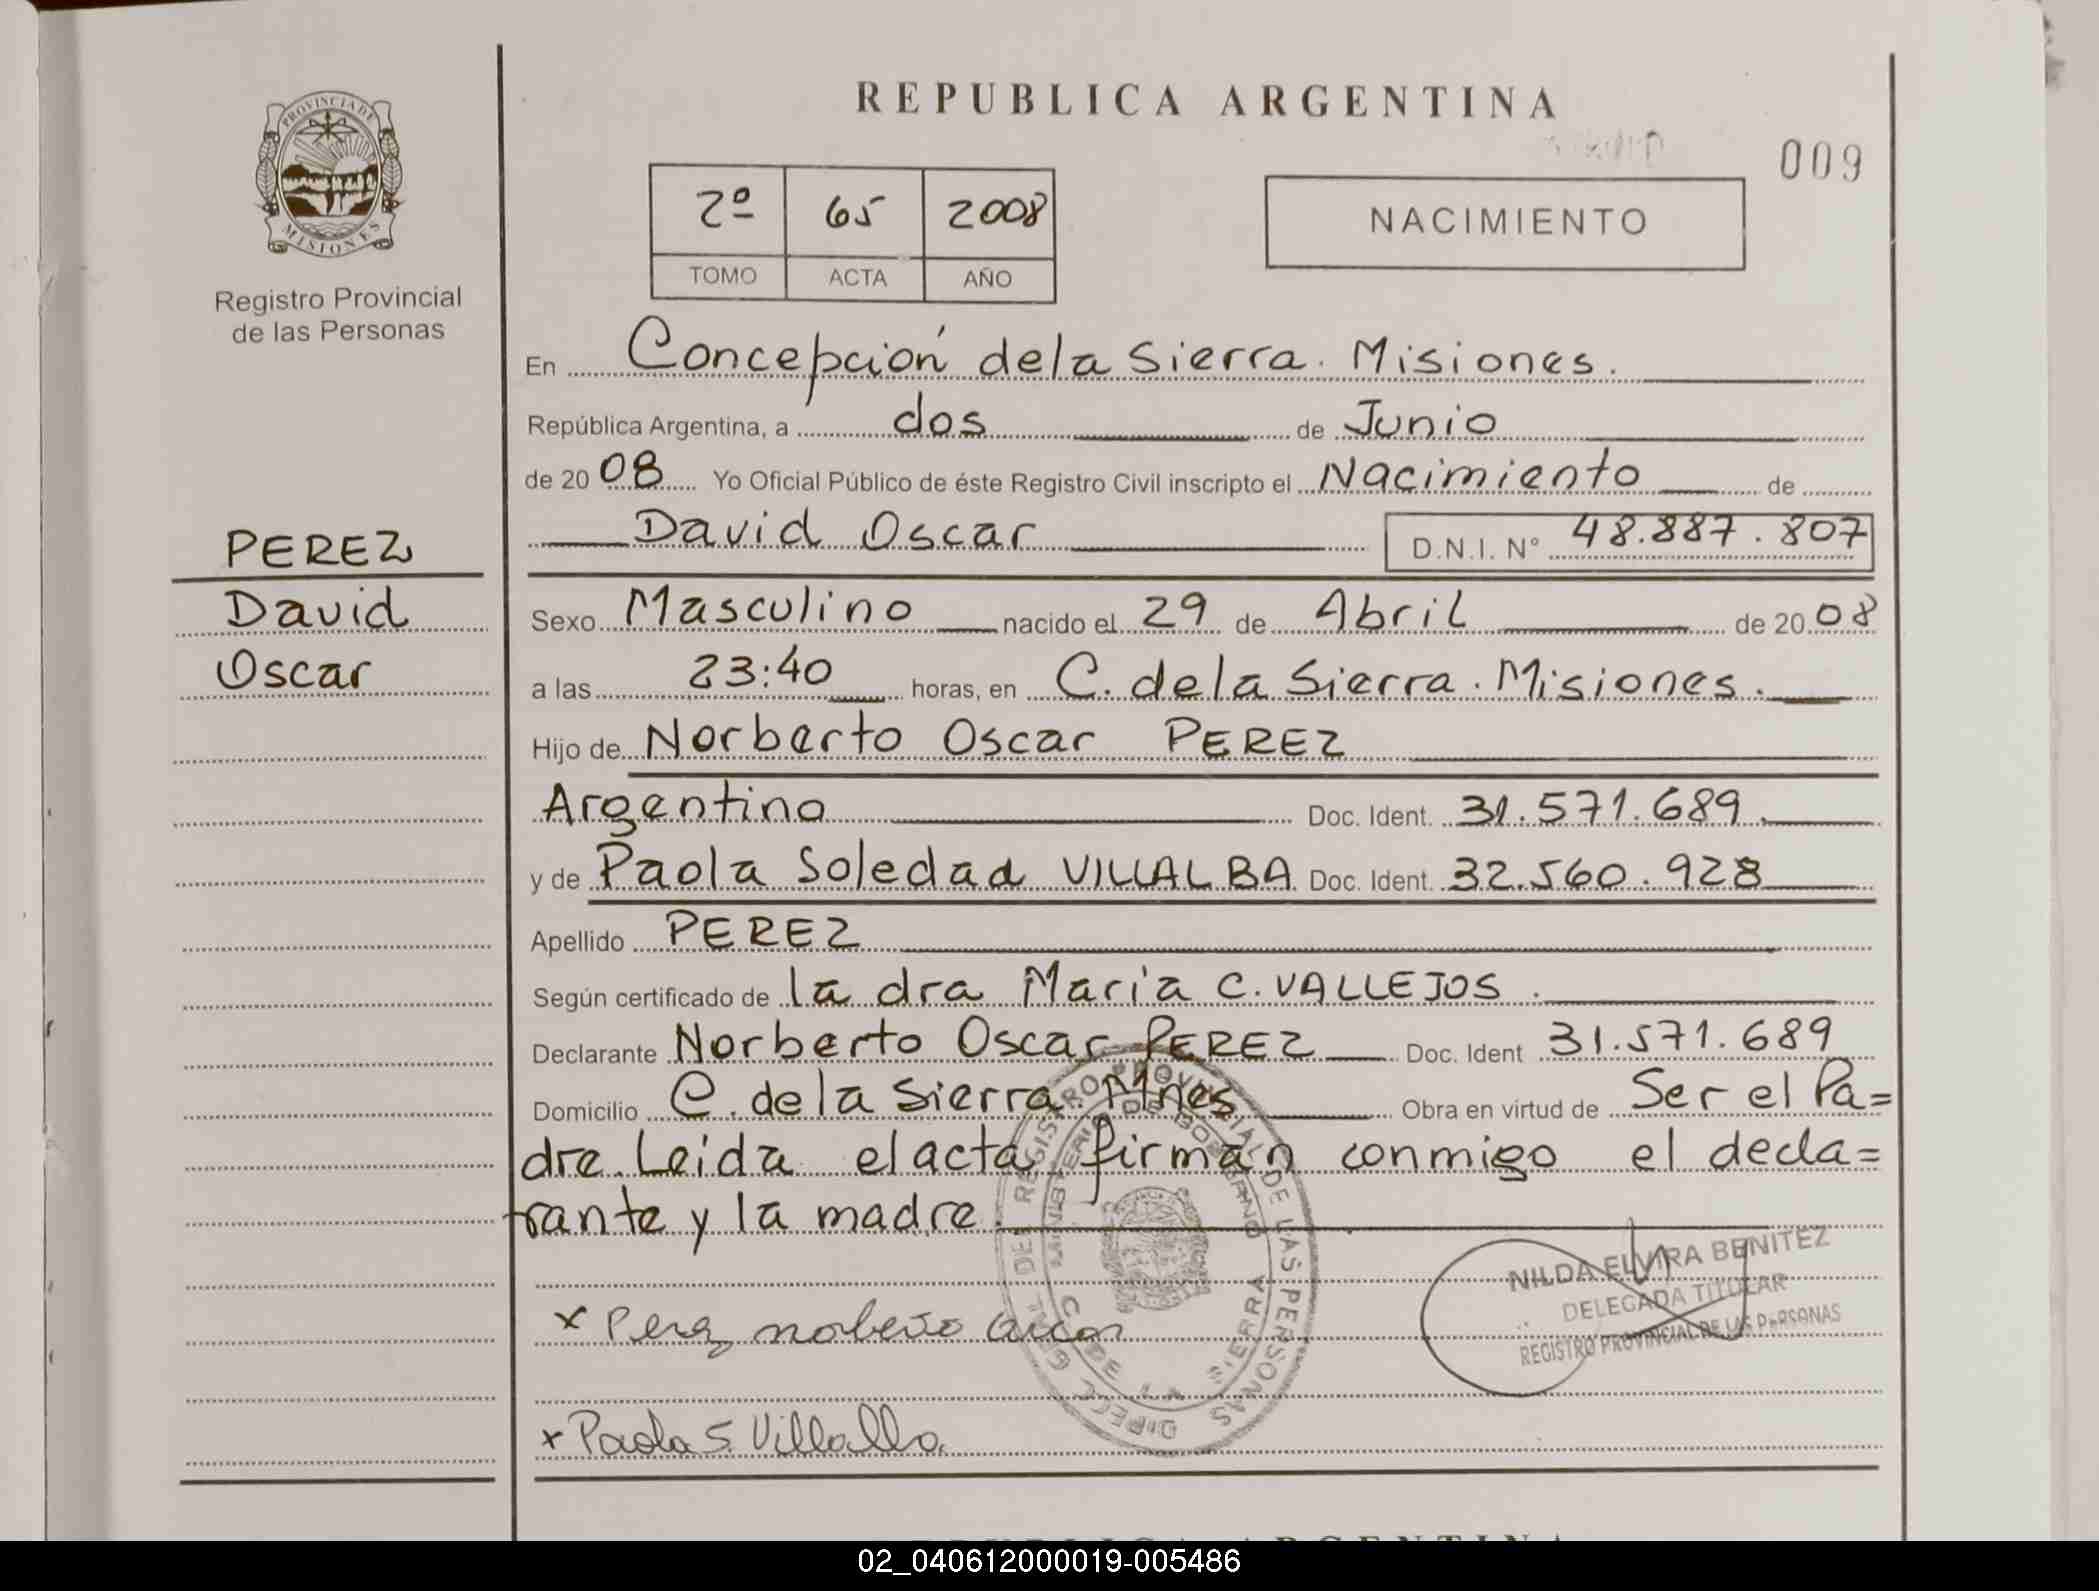 REPUBLICA ARGENTINA
009
PROVINCIA DE
MISIONES
Registro Provincial
de las Personas
2º 65 2008
TOMO ACTA AÑO
NACIMIENTO
En Concepción de la Sierra. Misiones.
República Argentina, a dos de Junio
de 2008 Yo Oficial Público de éste Registro Civil inscripto el Nacimiento de
David Oscar D.N.I. Nº 48.887.807
PEREZ
David
Oscar
Sexo Masculino nacido el 29 de Abril de 2008
a las 23:40 horas, en C. de la Sierra. Misiones.
Hijo de Norberto Oscar PEREZ
Argentino Doc. Ident. 31.571.689.
y de Paola Soledad VILLALBA Doc. Ident. 32.560.928
Apellido PEREZ
Según certificado de la dra Maria C. VALLEJOS.
Declarante Norberto Oscar PEREZ Doc. Ident 31.571.689
Domicilio C. de la Sierra Mnes Obra en virtud de Ser el Pa=
dre. Leida el acta firman conmigo el decla=
rante y la madre.
DIREC. GENERAL DEL REGISTRO PROVINCIAL DE LAS PERSONAS
MINISTERIO DE GOBIERNO
C. DE LA SIERRA
NILDA ELVIRA BENITEZ
DELEGADA TITULAR
REGISTRO PROVINCIAL DE LAS PERSONAS
x Perez norberto oscar
x Paola S. Villalba
REPUBLICA ARGENTINA
02_040612000019-005486